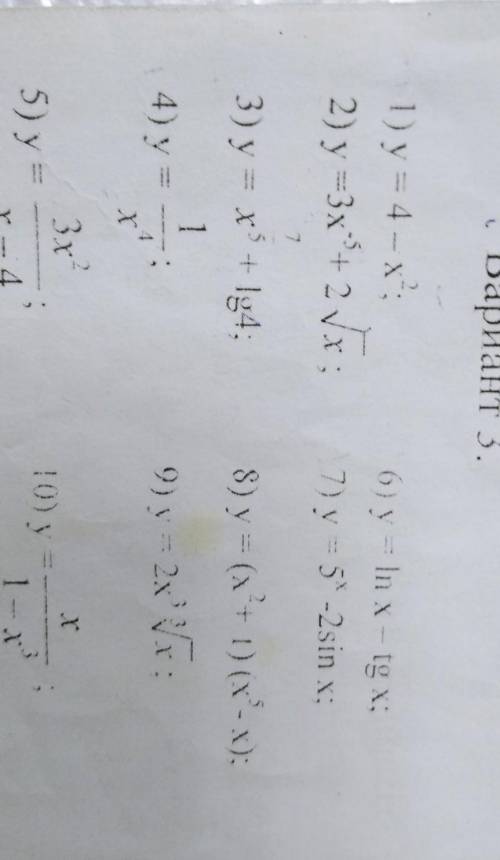 Вариант 3.
1) y = 4 – x²;
2) y =3x⁻⁵+ 2√x ;
3) y = x^(7/5) + lg4;
4) y = 1/x⁴ ;
5) y = 3x²/(x – 4) ;
6) y = ln x – tg x;
7) y = 5ˣ -2sin x;
8) y = (x²+ 1) (x⁵- x);
9) y = 2x³ ∛x ;
10) y = x/(1 – x³) ;